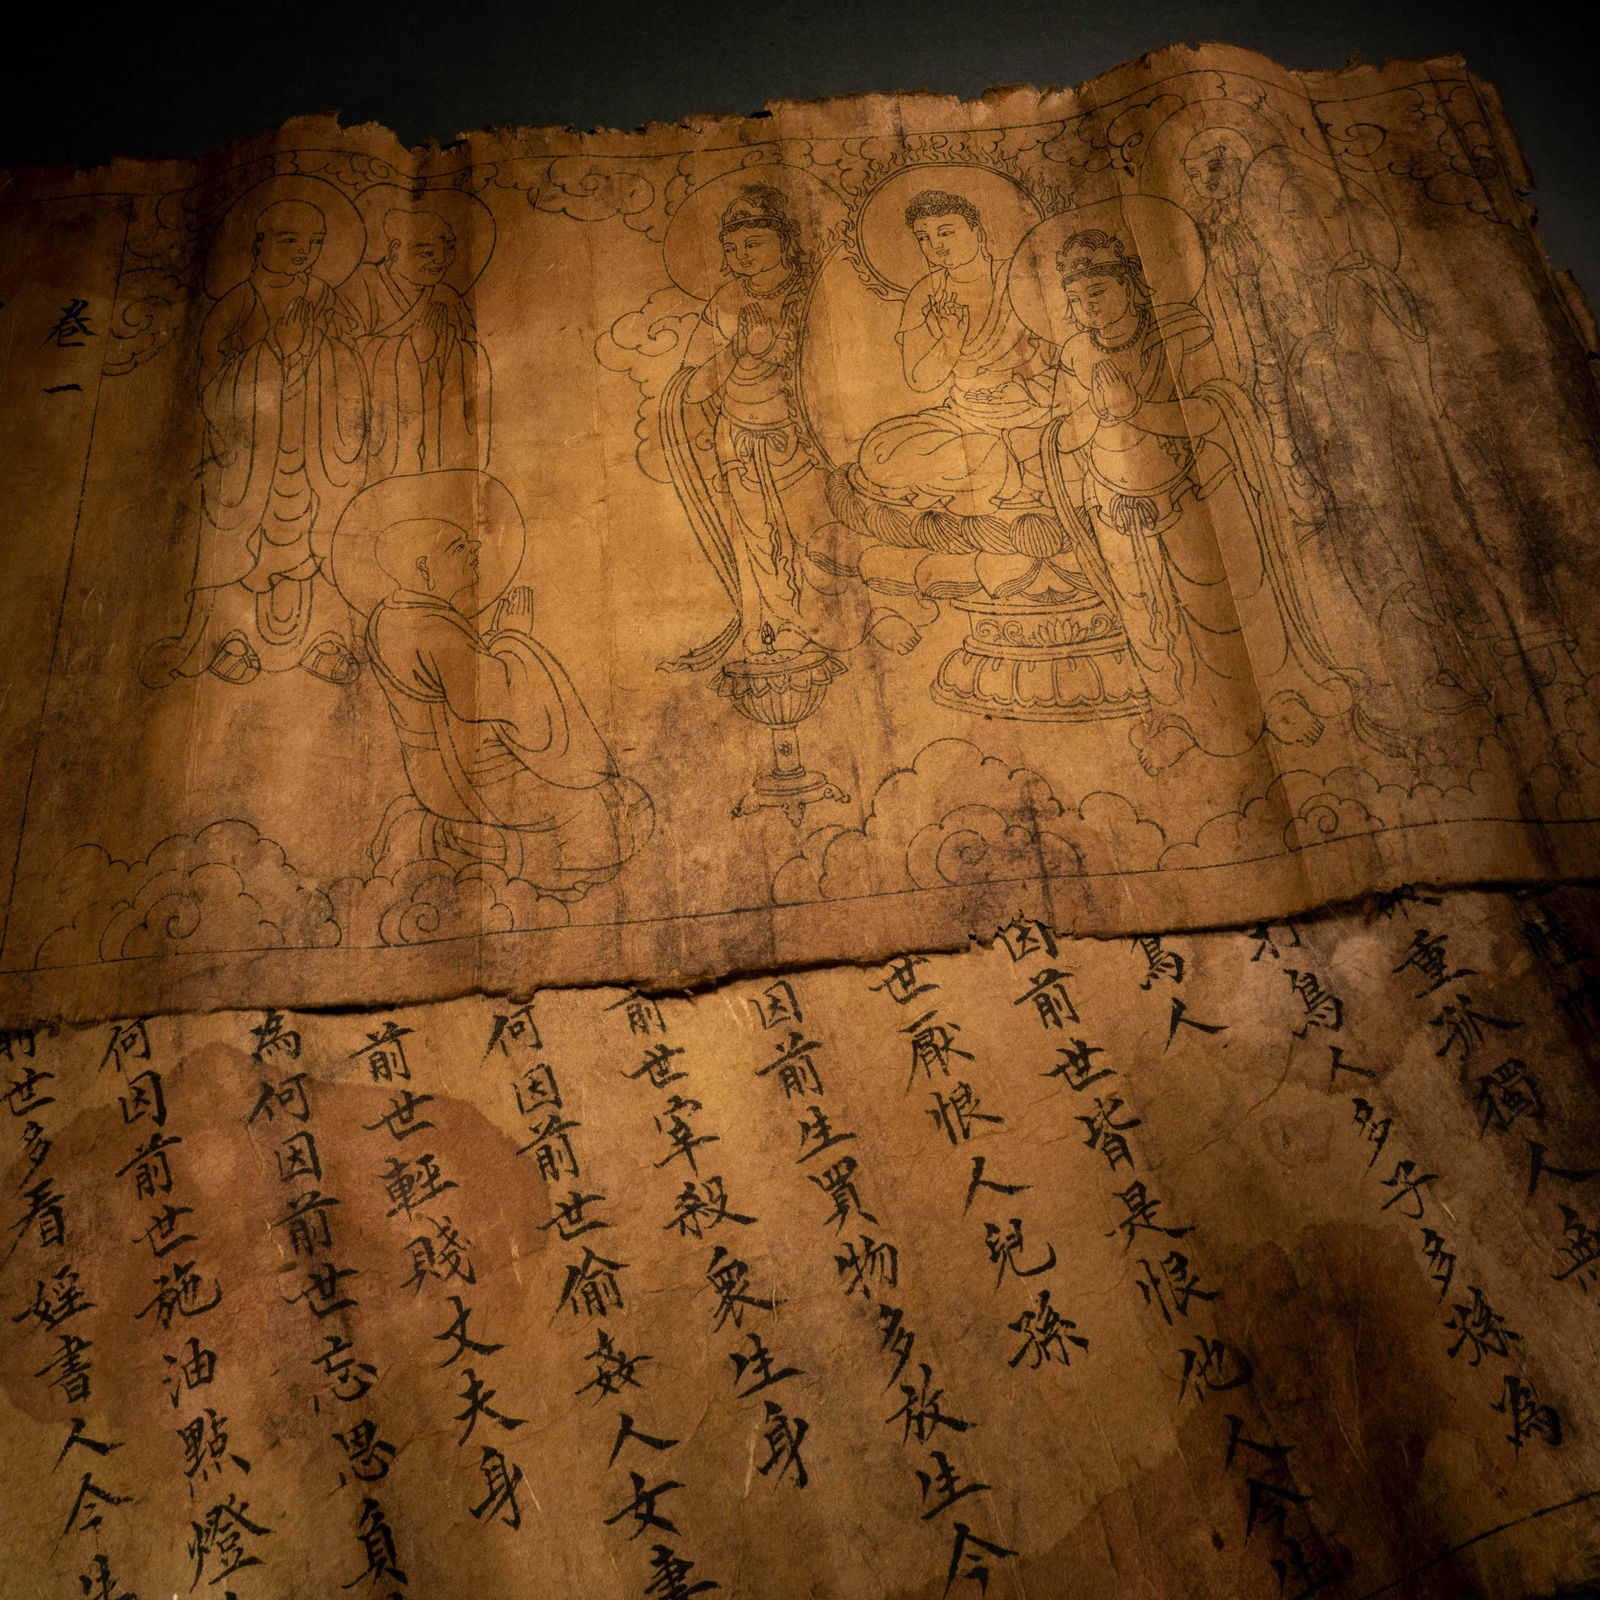 卷一
重孤獨人無
爲人多子多孫爲
爲人
因前世皆是恨他人今生
世厭恨人兒孫
因前生買物多放生今
前世宰殺衆生身
何因前世偷姦人女妻
前世輕賤丈夫身
為何因前世忘恩負
何因前世施油點燈
前世多看婬書人今生